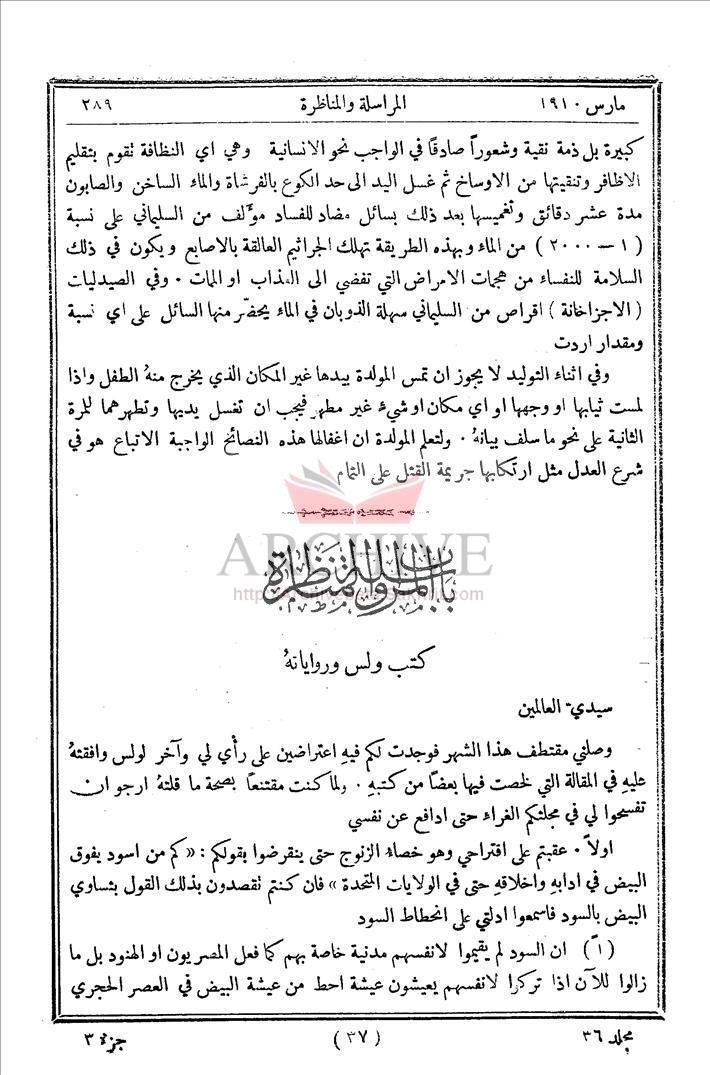 مارس ١٩١٠
المراسلة والمناظرة
٢٨٩
كبيرة بل ذمة نقية وشعوراً صادقاً في الواجب نحو الانسانية وهي اي النظافة تقوم بتقليم
الاظافر وتنقيتها من الاوساخ ثم غسل اليد الى حد الكوع بالفرشاة والماء الساخن والصابون
مدة عشر دقائق وتغميسها بعد ذلك بسائل مضاد للفساد مؤلف من السليماني على نسبة
( ١ — ٢٠٠٠ ) من الماء وبهذه الطريقة تهلك الجراثيم العالقة بالاصابع ويكون في ذلك
السلامة للنفساء من هجمات الامراض التي تفضي الى العذاب او المات ٠ وفي الصيدليات
( الاجزاخانة ) اقراص من السليماني سهلة الذوبان في الماء يحضّر منها السائل على اي نسبة
ومقدار اردت
وفي اثناء التوليد لا يجوز ان تمس المولدة بيدها غير المكان الذي يخرج منهُ الطفل واذا
لمست ثيابها او وجهها او اي مكان او شيء غير مطهر فيجب ان تغسل يديها وتطهرهما للمرة
الثانية على نحو ما سلف بيانهُ ٠ ولتعلم المولدة ان اغفالها هذه النصائح الواجبة الاتباع هو في
شرع العدل مثل ارتكابها جريمة القتل على التمام
ARCHIVE
باب المراسلة والمناظرة
كتب ولس ورواياتهُ
سيديّ العالمين
وصلني مقتطف هذا الشهر فوجدت لكم فيهِ اعتراضين على رأي لي وآخر لولس وافقتهُ
عليهِ في المقالة التي لخصت فيها بعضاً من كتبهِ ٠ ولما كنت مقتنعاً بصحة ما قلتهُ ارجو ان
تفسحوا لي في مجلتكم الغراء حتى ادافع عن نفسي
اولاً ٠ عقبتم على اقتراحي وهو خصاء الزنوج حتى ينقرضوا بقولكم : « كم من اسود يفوق
البيض في ادابهِ واخلاقهِ حتى في الولايات المتحدة » فان كنتم تقصدون بذلك القول بتساوي
البيض بالسود فاسمعوا ادلتي على انحطاط السود
( اً ) ان السود لم يقيموا لانفسهم مدنية خاصة بهم كما فعل المصريون او الهنود بل ما
زالوا للآن اذا تركوا لانفسهم يعيشون عيشة احط من عيشة البيض في العصر الحجري
مجلد ٣٦
( ٣٧ )
جزء ٣